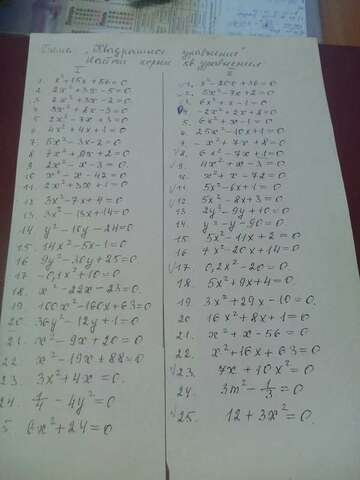 Тема „Квадратные уравнения"
Найти корни кв. уравнения
I
1. x²+15x+56=0
2. 2x²+3x-5=0
3. 2x²+3x-2=0
5. 2x²-7x+3=0
6. 4x²+4x+1=0
7. 5x²-3x-2=0
8. 7x²+9x+2=0
9. 2x²-x-3=0.
10. x²-x-42=0
11. 2x²+3x+1=0
12. 3x²-7x+4=0
13. 3x²-13x+14=0
14. y²-10y-24=0
15. 14x²-5x-1=0
16. 9y²-30y+25=0
17. -0,1x²+10=0
18. x²-22x-23=0.
19. 100x²-160x+63=0
20. 36y²-12y+1=0
21. x²-9x+20=0
22. x²-19x+88=0
23. 3x²+4x=0.
24. 1/4-4y²=0
5. 6x²+24=0
II
1. x²-20x+36=0
2. 5x²-7x+2=0
3. 6x²+x-1=0
5. 6x²+x-1=0
6. 25x²-10x+1=0
7. -x²+7x+8=0
8. 6x²-7x+1=0
9. 4x²+x-3=0
10. x²+x-72=0
11. 5x²-6x+1=0
12. 5x²-8x+3=0
13. 2y²-9y+10=0
14. y²-y-90=0
15. 5x²-11x+2=0
16. 4x²-20x+14=0
17. 0,2x²-20=0.
18. 5x²+9x+4=0
19. 3x²+29x-10=0.
20. 16x²+8x+1=0
21. x²+x-56=0
22. x²+16x+63=0
23. 7x+10x²=0
24. 3m²-1/3=0
25. 12+3x²=0.